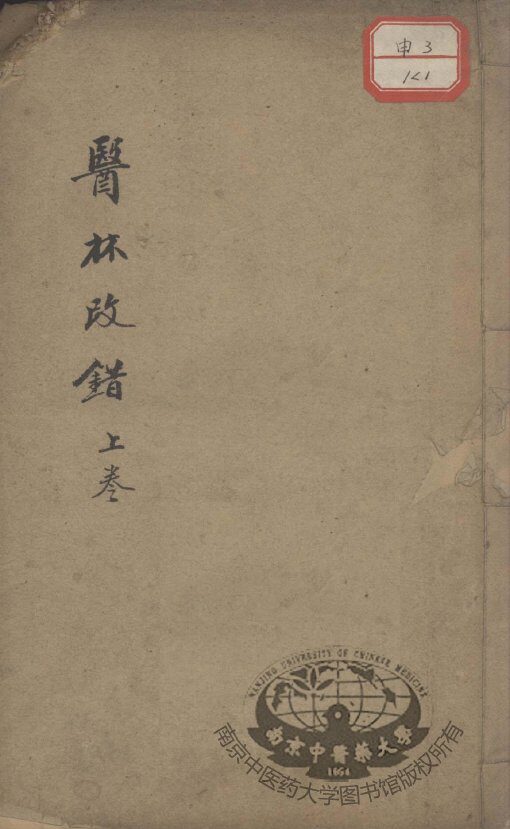 申3
1<1
醫林改錯上卷
NANJING UNIVERSITY OF CHINESE MEDICINE
南京中醫藥大學
1954
南京中医药大学图书馆版权所有